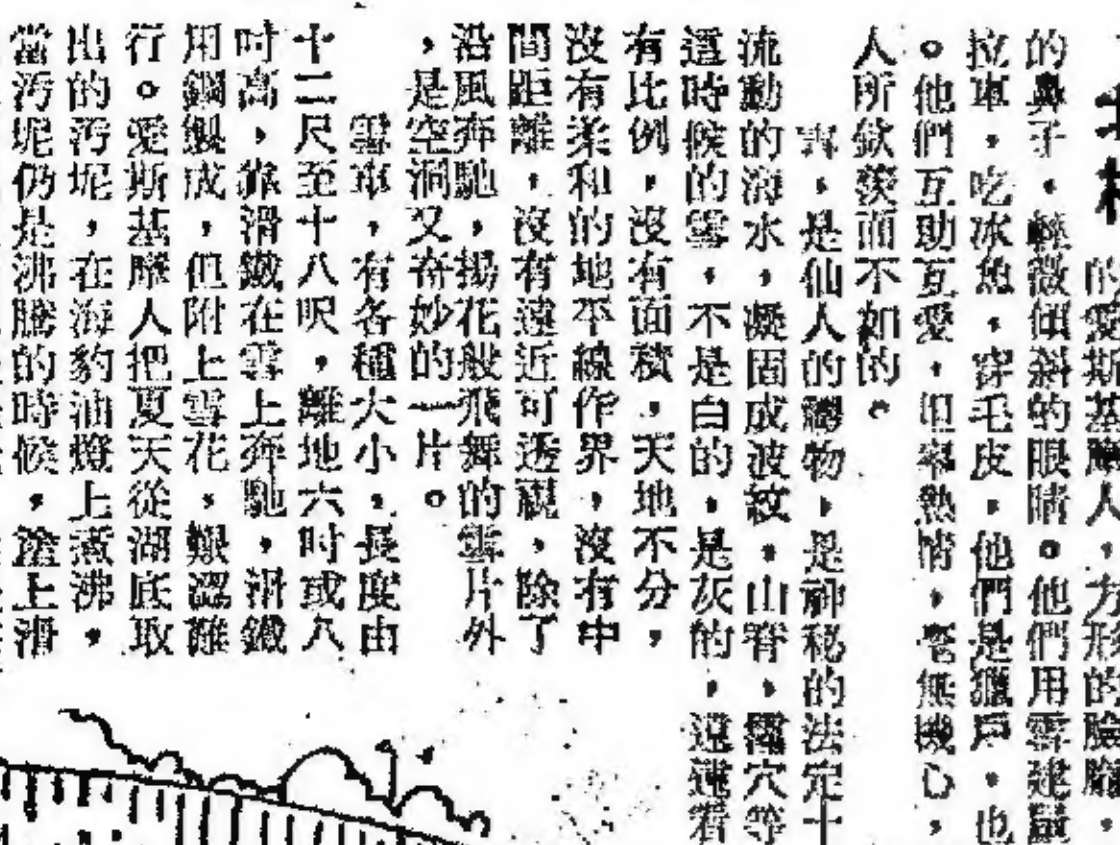 的愛斯基摩人，方形的臉龐，
的鼻子，輕微傾斜的眼睛。他們用雪建
拉車，吃冰魚，穿毛皮，他們是獵戶，也
。他們互助互愛，坦率熱情，毫無機心，
人所欽羨而不如的。
雪，是仙人的禮物，是神秘的法定
流動的海水，凝固成波紋，山脊，穴等
這時候的雪，不是白的，是灰的，遠遠看
有比例，沒有面積，天地不分，
沒有柔和的地平線作界，沒有中
間距離，沒有遠近可透視，除了
沿風奔馳，揚花般飛舞的雪片外
，是空洞又奇妙的一片。
雪車，有各種大小，長度由
十二尺至十八呎，離地六吋或八
吋高，靠滑鐵在雪上奔馳，滑鐵
用鋼製成，但附上雪花，艱澀難
行。愛斯基摩人把夏天從湖底取
出的污坭，在海豹油燈上煮沸，
當污坭仍是沸騰的時候，塗上滑